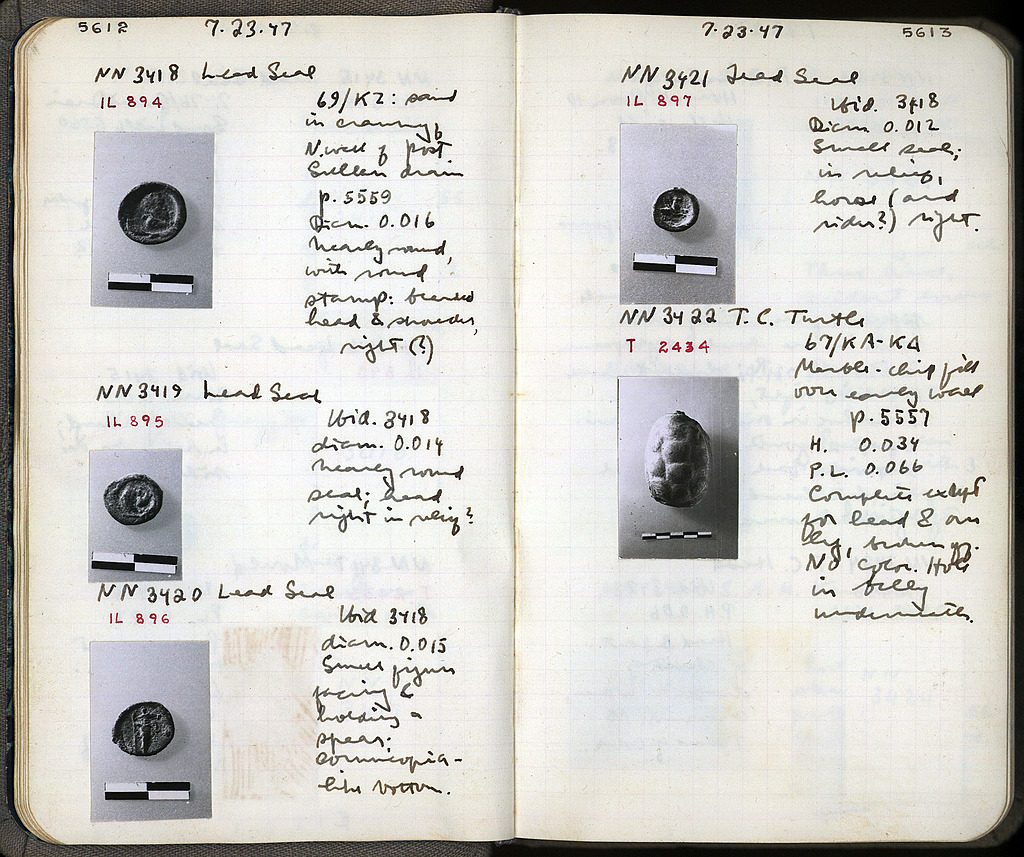 5612
7.23.47
NN 3418 Lead Seal
IL 894
69/KZ: sand
in cranny,
N. wall of post
Sullan drain
p. 5559
Diam. 0.016
Nearly round,
with round
stamp: bearded
head & shoulder,
right (?)
NN 3419 Lead Seal
IL 895
Ibid. 3418
diam. 0.014
Nearly round
seal; head
right in relief?
NN 3420 Lead Seal
IL 896
Ibid 3418
diam. 0.015
Small figure
facing &
holding a
spear;
cornucopia-
like bottom.
5613
7.23.47
NN 3421 Lead Seal
IL 897
Ibid. 3418
Diam 0.012
Small seal;
in relief,
horse (and
rider?) right.
NN 3422 T.C. Turtle
T 2434
67/KA-KA
Marble-chip fill
over early
p. 5557
H. 0.034
P.L. 0.066
Complete except
for head & one
leg, broken off.
No color. Hole
in belly
underneath.